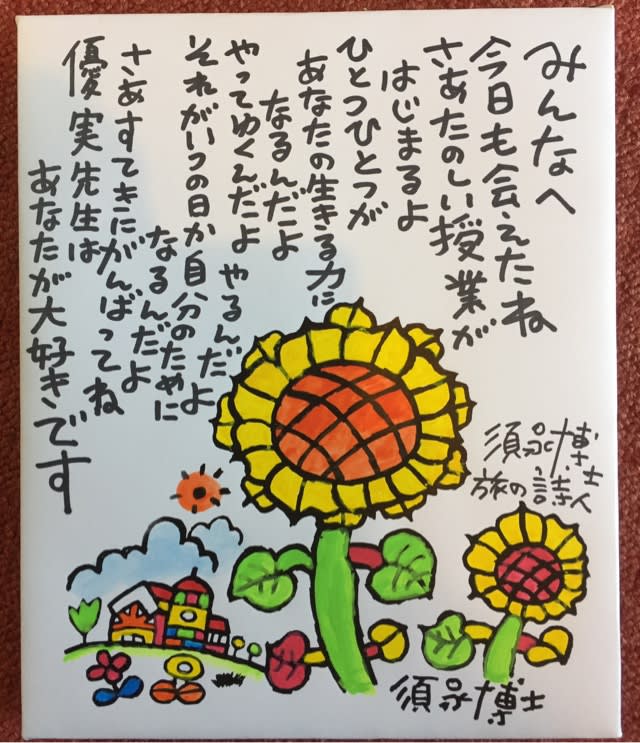 みんなへ
今日も会えたね
さあたのしい授業が
はじまるよ
ひとつひとつが
あなたの生きる力に
なるんだよ
やってゆくんだよ やるんだよ
それがいつの日か自分のために
なるんだよ
さあすてきにがんばってね
優実先生は
あなたが大好きです
須永博士
旅の詩人
須永博士